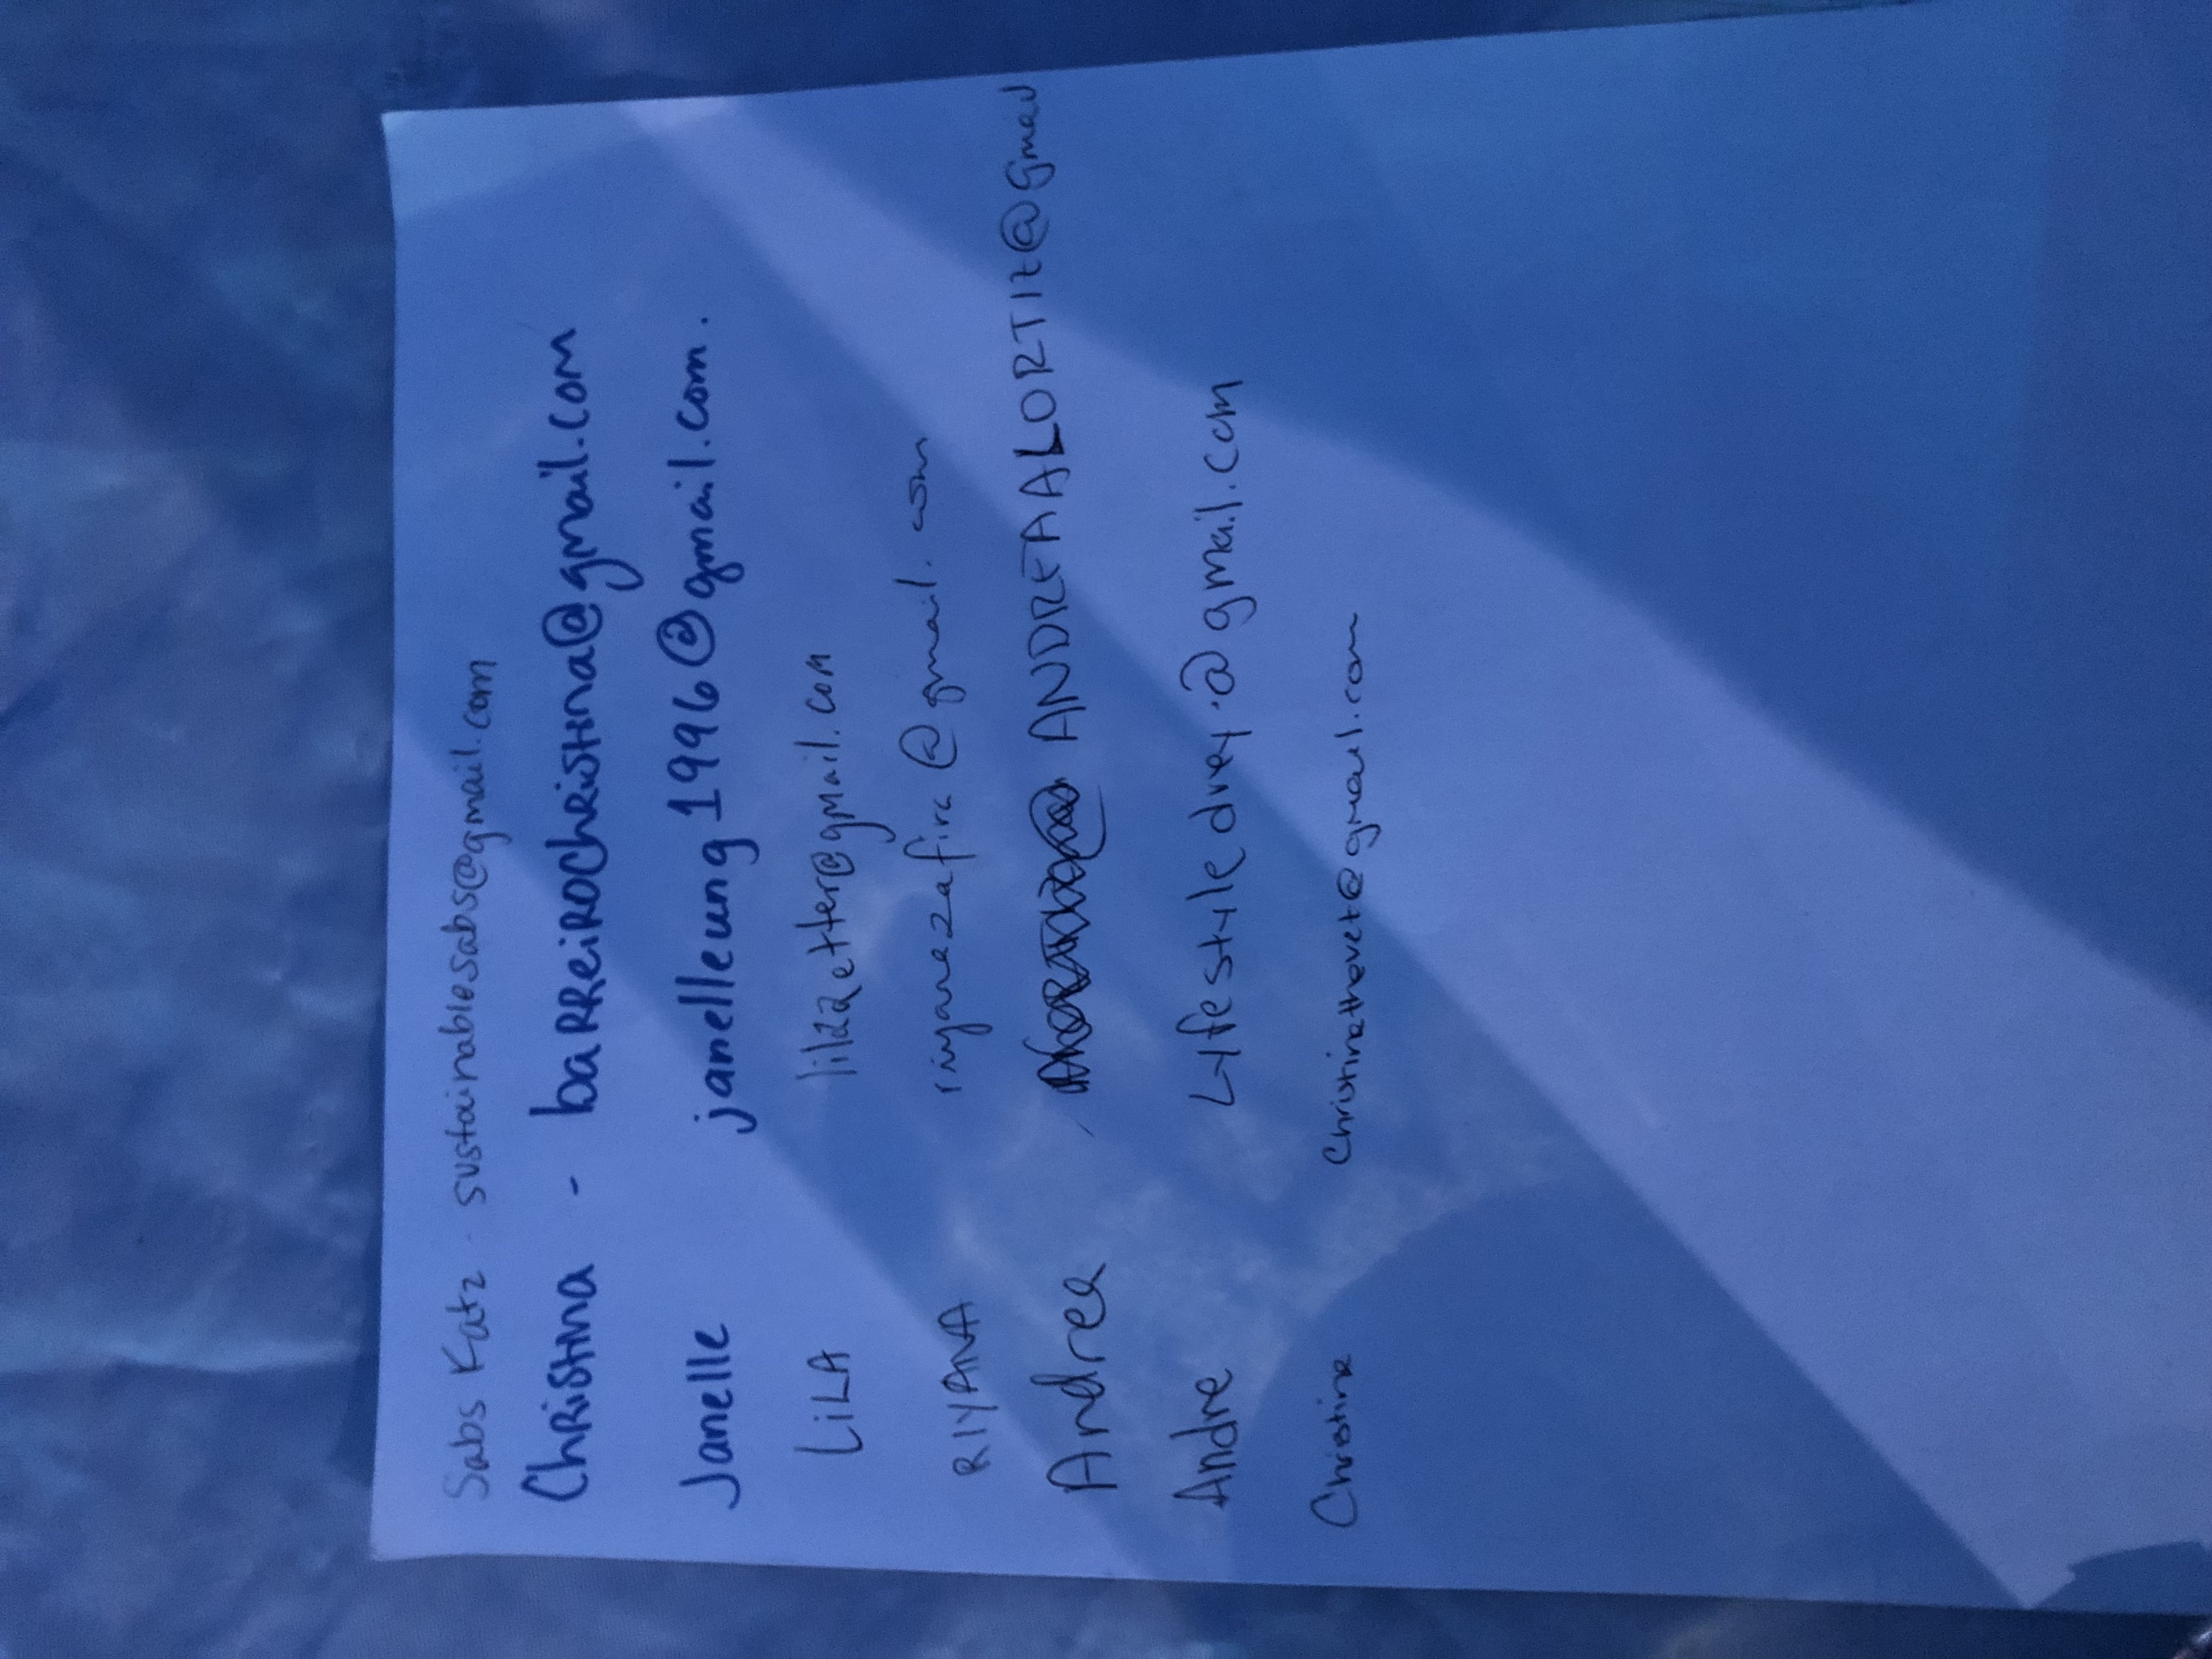 Sabs Katz - sustainablesabs@gmail.com
Christina - barreirochristina@gmail.com
Janelle janelleung1996@gmail.com.
LiLA lilazetter@gmail.com
RIYANA riyanazafira@gmail.com
Andrea ANDREAALORTIZ@gmail
Andre Lyfestyledrey.@gmail.com
Christine Christinethevet@gmail.com